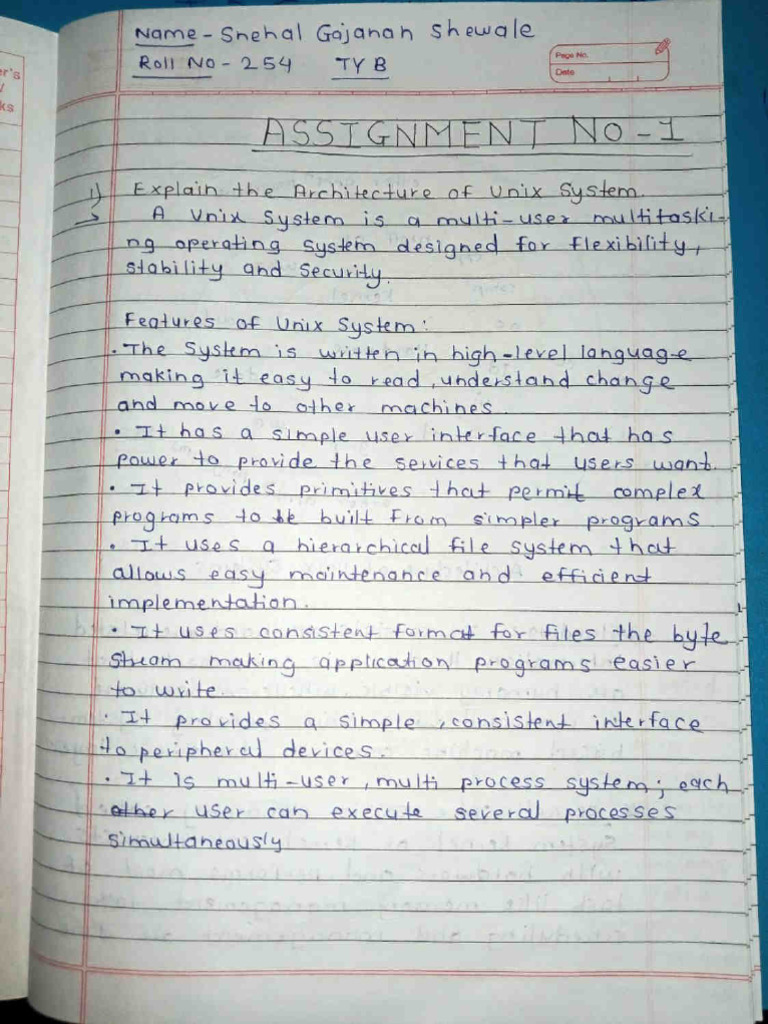 er's
ks
Name - Snehal Gajanan Shewale
Roll No - 254 TY B
Page No.
Date
ASSIGNMENT NO - 1
1) Explain the Architecture of Unix System.
→ A Unix System is a multi-user multitaski-
ng operating system designed for flexibility,
stability and security.
Features of Unix System:
• The System is written in high-level language
making it easy to read, understand change
and move to other machines.
• It has a simple user interface that has
power to provide the services that users want.
• It provides primitives that permit complex
programs to be built from simpler programs
• It uses a hierarchical file system that
allows easy maintenance and efficient
implementation.
• It uses consistent format for files the byte
stream making application programs easier
to write.
• It provides a simple, consistent interface
to peripheral devices.
• It is multi-user, multi process system; each
other user can execute several processes
simultaneously